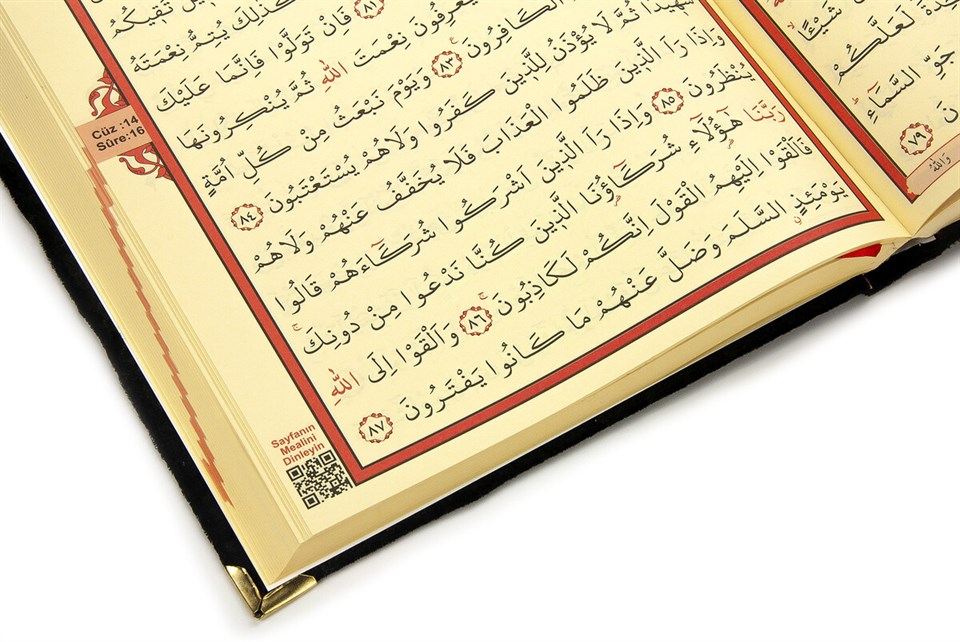 شَيْـًٔا
لَعَلَّكُمْ
جَوِّ السَّمَٓاءِ
٧٩
وَاللّٰهُ
تَقٖيكُمْ
كَذٰلِكَ يُتِمُّ نِعْمَتَهُ
٨١ فَاِنْ تَوَلَّوْا فَاِنَّمَا عَلَيْكَ
يَعْرِفُونَ نِعْمَتَ اللّٰهِ ثُمَّ يُنْكِرُونَهَا
الْكَافِرُونَ ٨٣ وَيَوْمَ نَبْعَثُ مِنْ كُلِّ اُمَّةٍ
شَهٖيدًا ثُمَّ لَا يُؤْذَنُ لِلَّذٖينَ كَفَرُوا وَلَاهُمْ يُسْتَعْتَبُونَ ٨٤
وَاِذَا رَاَ الَّذٖينَ ظَلَمُوا الْعَذَابَ فَلَا يُخَفَّفُ عَنْهُمْ وَلَاهُمْ
يُنْظَرُونَ ٨٥ وَاِذَا رَاَ الَّذٖينَ اَشْرَكُوا شُرَكَٓاءَهُمْ قَالُوا
رَبَّنَا هٰٓؤُلَٓاءِ شُرَكَٓاؤُنَا الَّذٖينَ كُنَّا نَدْعُوا مِنْ دُونِكَ
فَاَلْقَوْا اِلَيْهِمُ الْقَوْلَ اِنَّكُمْ لَكَاذِبُونَ ٨٦ وَاَلْقَوْا اِلَى اللّٰهِ
يَوْمَئِذٍ السَّلَمَ وَضَلَّ عَنْهُمْ مَا كَانُوا يَفْتَرُونَ ٨٧
Cüz :14
Sûre:16
Sayfanın
Mealini
Dinleyin